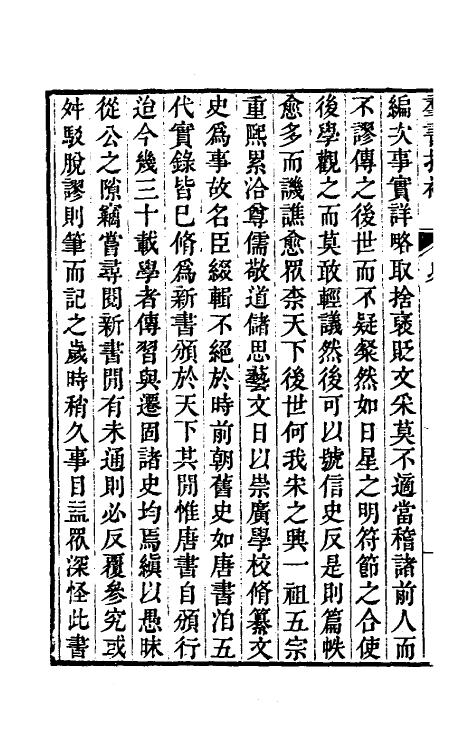 編次事實詳略取捨襃貶文采莫不適當稽諸前人而
不謬傳之後世而不疑粲然如日星之明符節之合使
後學觀之而莫敢輕議然後可以號信史反是則篇帙
愈多而譏譙愈眾柰天下後世何我宋之興一祖五宗
重熙累洽尊儒敬道儲思藝文日以崇廣學校脩纂文
史爲事故名臣綴輯不絕於時前朝舊史如唐書洎五
代實錄皆已脩爲新書頒於天下其閒惟唐書自頒行
迨今幾三十載學者傳習與遷固諸史均焉縝以愚昧
從公之隙竊嘗尋閱新書閒有未通則必反覆參究或
舛駁脫謬則筆而記之歲時稍久事目益眾深怪此書